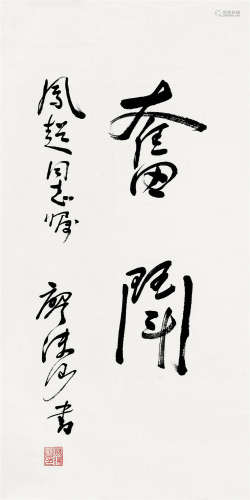 奮鬪
鳳超同志嘱
廖沫沙書